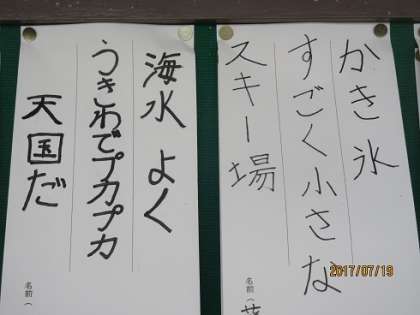 かき氷
すごく小さな
スキー場
名前（
海水 よく
うきわでプカプカ
天国だ
名前（
2017/07/19